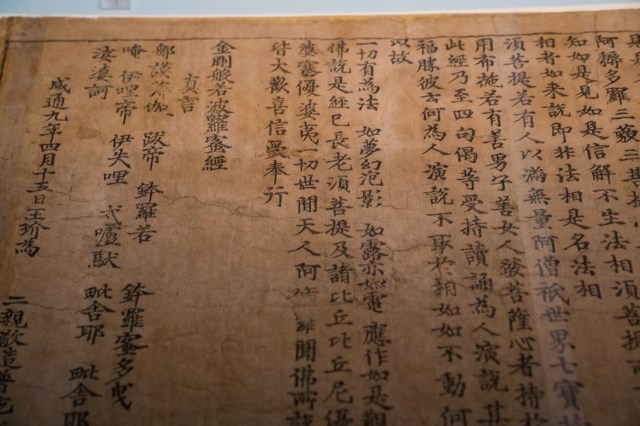 阿耨多羅三藐三菩提
知如是見如是信解不生法相須菩提所
相者如來說即非法相是名法相
須菩提若有人以滿無量阿僧祇世界七寶持
用布施若有善男子善女人發菩薩心者持於
此經乃至四句偈等受持讀誦為人演說其
福勝彼云何為人演說不取於相如如不動何
以故
一切有為法 如夢幻泡影 如露亦如電 應作如是觀
佛說是經已長老須菩提及諸比丘比丘尼優
婆塞優婆夷一切世間天人阿 羅聞佛所說
皆大歡喜信受奉行
金剛般若波羅蜜經
真言
那謨 伽 跋帝 鉢羅若 鉢羅蜜多曳
唵 伊哩帝 伊失哩 戍嚧馱 毗舍耶 毗舍耶
娑婆訶
咸通九年四月十五日王玠為 二親敬造普施